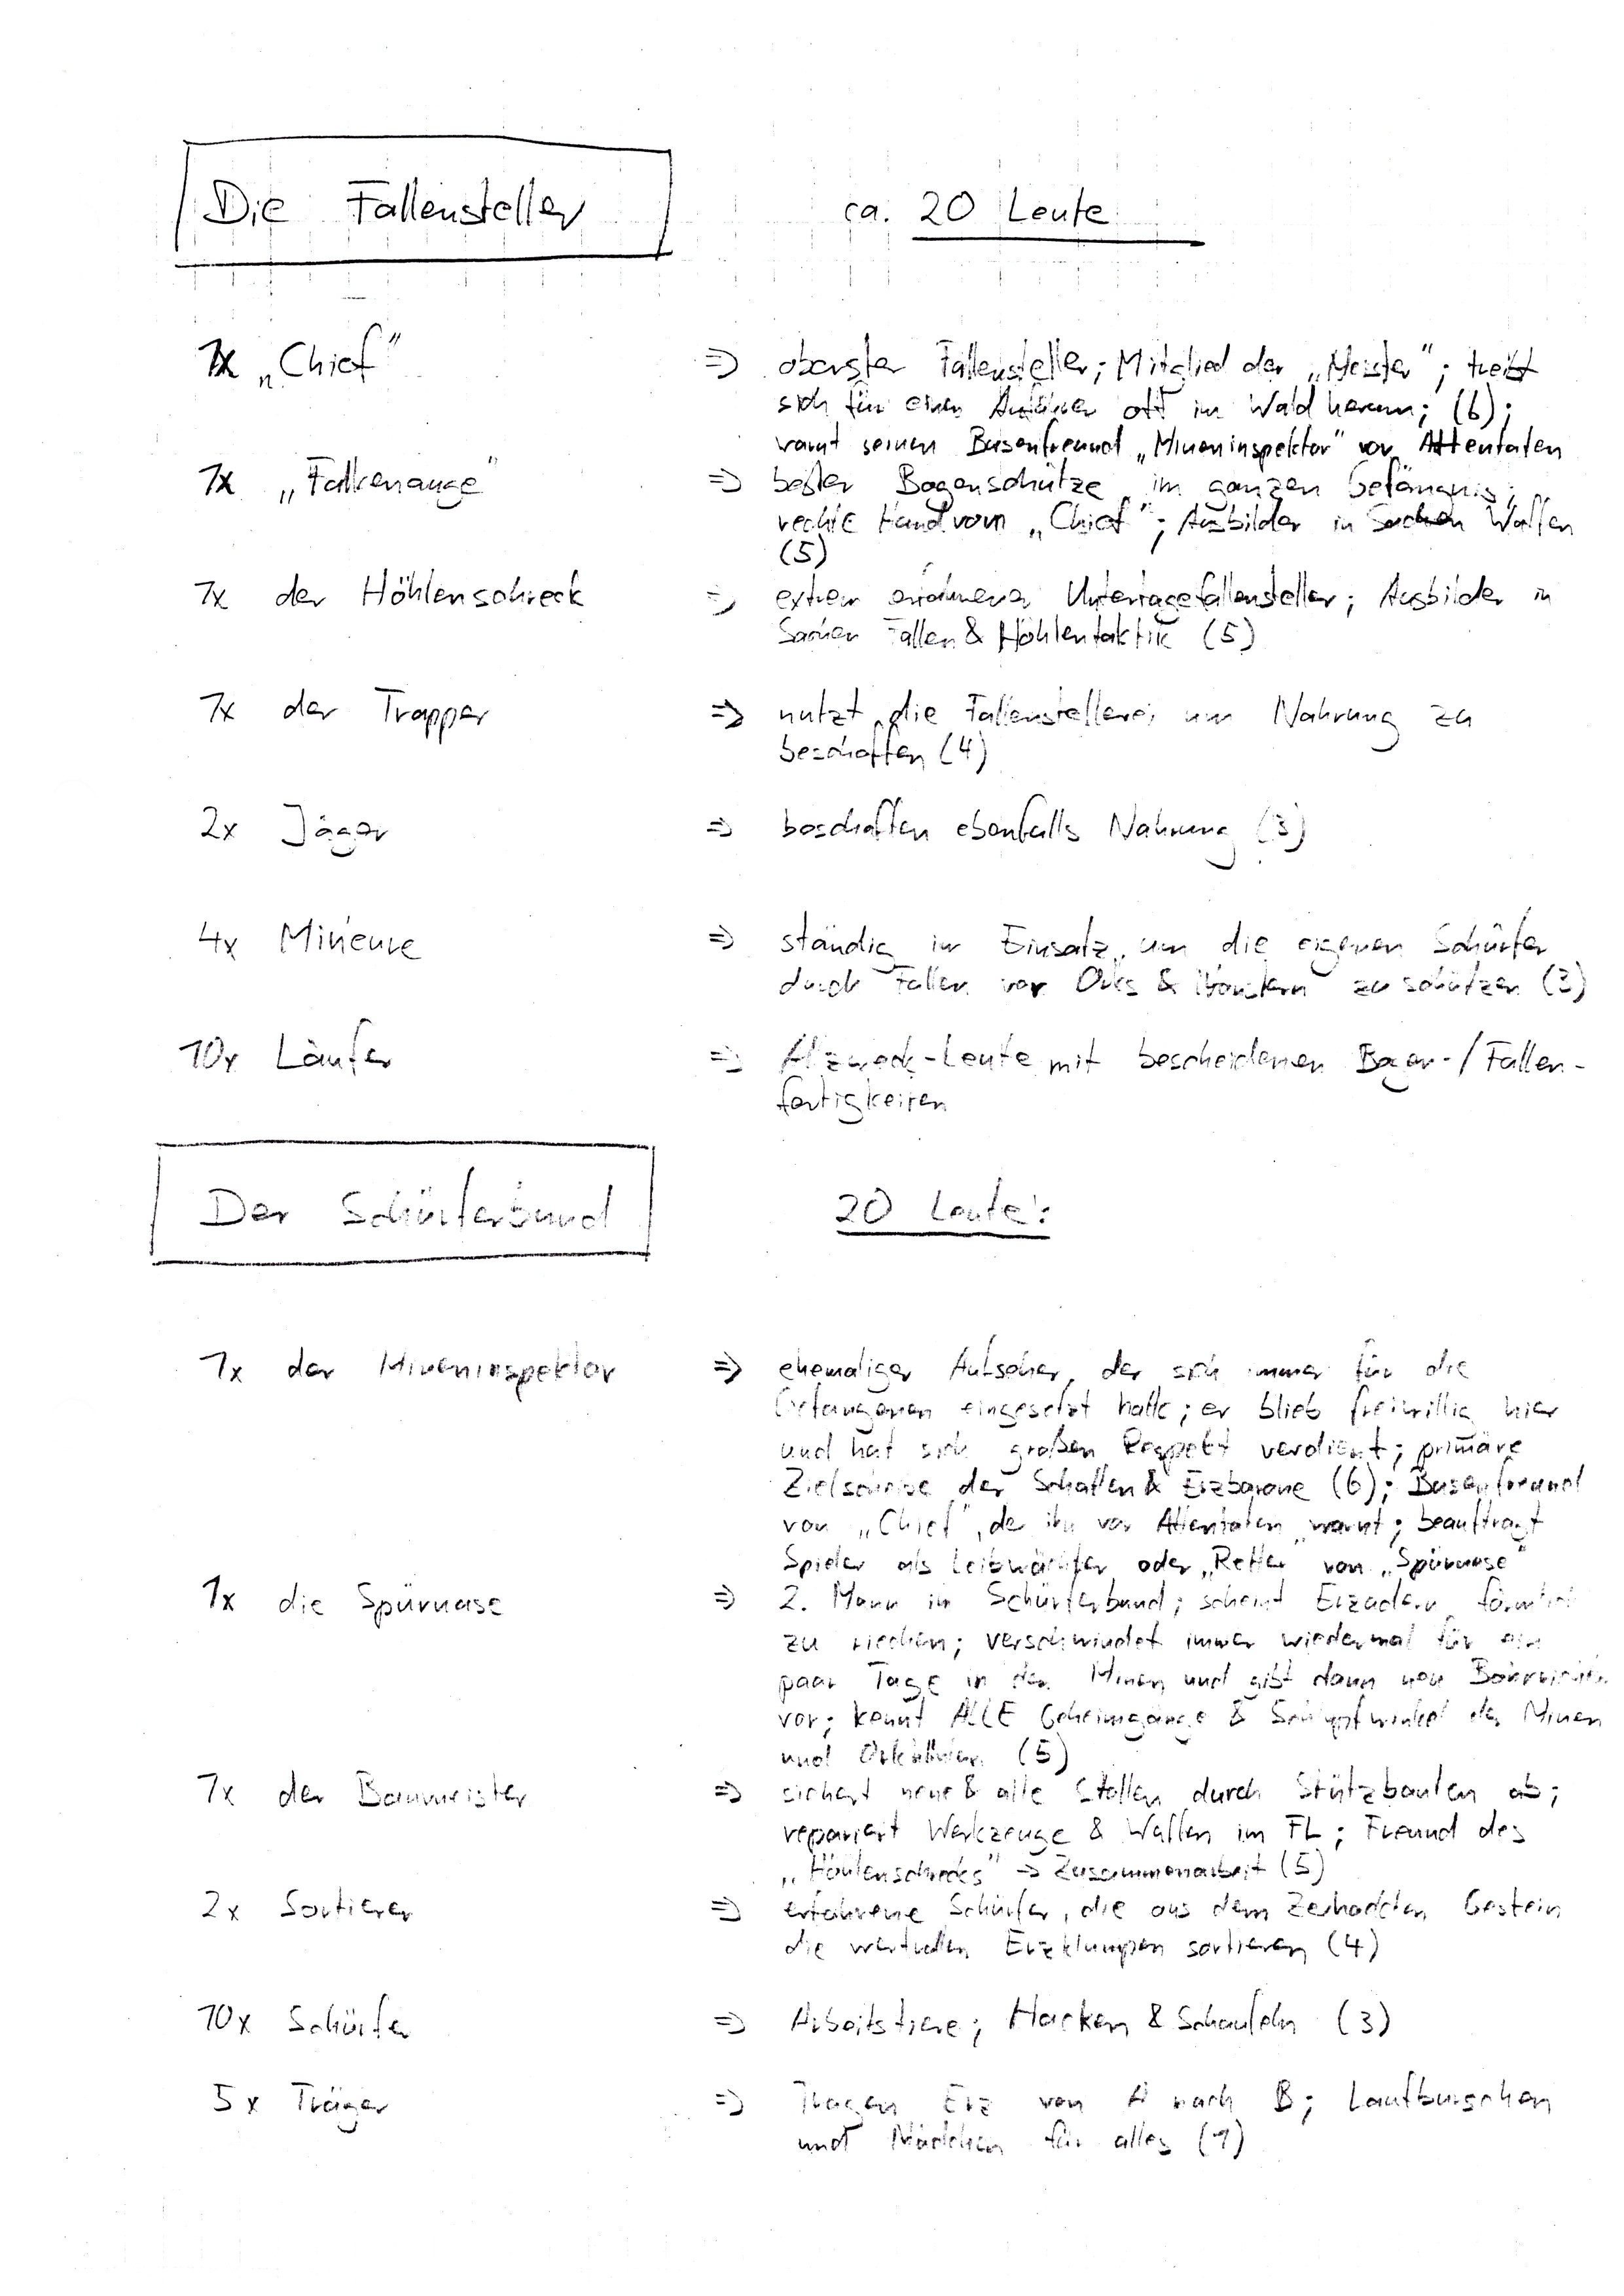 Die Fallensteller ca. 20 Leute
1x „Chief" => oberster Fallensteller; Mitglied der „Meister"; treibt
sich für einen Anführer oft im Wald herum; (6);
warnt seinen Busenfreund „Mineninspektor" vor Attentaten
1x „Falkenauge" => bester Bogenschütze im ganzen Gefängnis;
rechte Hand vom „Chief"; Ausbilder in Sachen Waffen
(5)
1x der Höhlenschreck => extrem erfahrener Untertagefallensteller; Ausbilder in
Sachen Fallen & Höhlentaktik (5)
1x der Trapper => nutzt die Fallenstellerei um Nahrung zu
beschaffen (4)
2x Jäger => beschaffen ebenfalls Nahrung (3)
4x Mineure => ständig im Einsatz um die eigenen Schürfer
durch Fallen vor Orks & Monstern zu schützen (3)
10x Läufer => Allzweck-Leute mit bescheidenen Bogen-/Fallen-
fertigkeiten
Der Schürferbund 20 Leute:
1x der Mineninspektor => ehemaliger Aufseher, der sich immer für die
Gefangenen eingesetzt hatte; er blieb freiwillig hier
und hat sich großen Respekt verdient; primäre
Zielscheibe der Schatten & Erzbarone (6); Busenfreund
von „Chief", der ihn vor Attentaten warnt; beauftragt
Spieler als Leibwächter oder „Retter" von „Spürnase"
1x die Spürnase => 2. Mann im Schürferbund; scheint Erzadern förmlich
zu riechen; verschwindet immer wiedermal für ein
paar Tage in den Minen und gibt dann neue
vor; kennt ALLE Geheimgänge & Schlupfwinkel der Minen
und Orkhöhlen (5)
1x der Baumeister => sichert neue & alte Stollen durch Stützbauten ab;
repariert Werkzeuge & Waffen im FL; Freund des
„Höhlenschrecks" -> Zusammenarbeit (5)
2x Sortierer => erfahrene Schürfer, die aus dem zerhackten Gestein
die wertvollen Erzklumpen sortieren (4)
10x Schürfer => Arbeitstiere; Hacken & Schaufeln (3)
5x Träger => Tragen Erz von A nach B; Laufburschen
und Mädchen für alles (1)